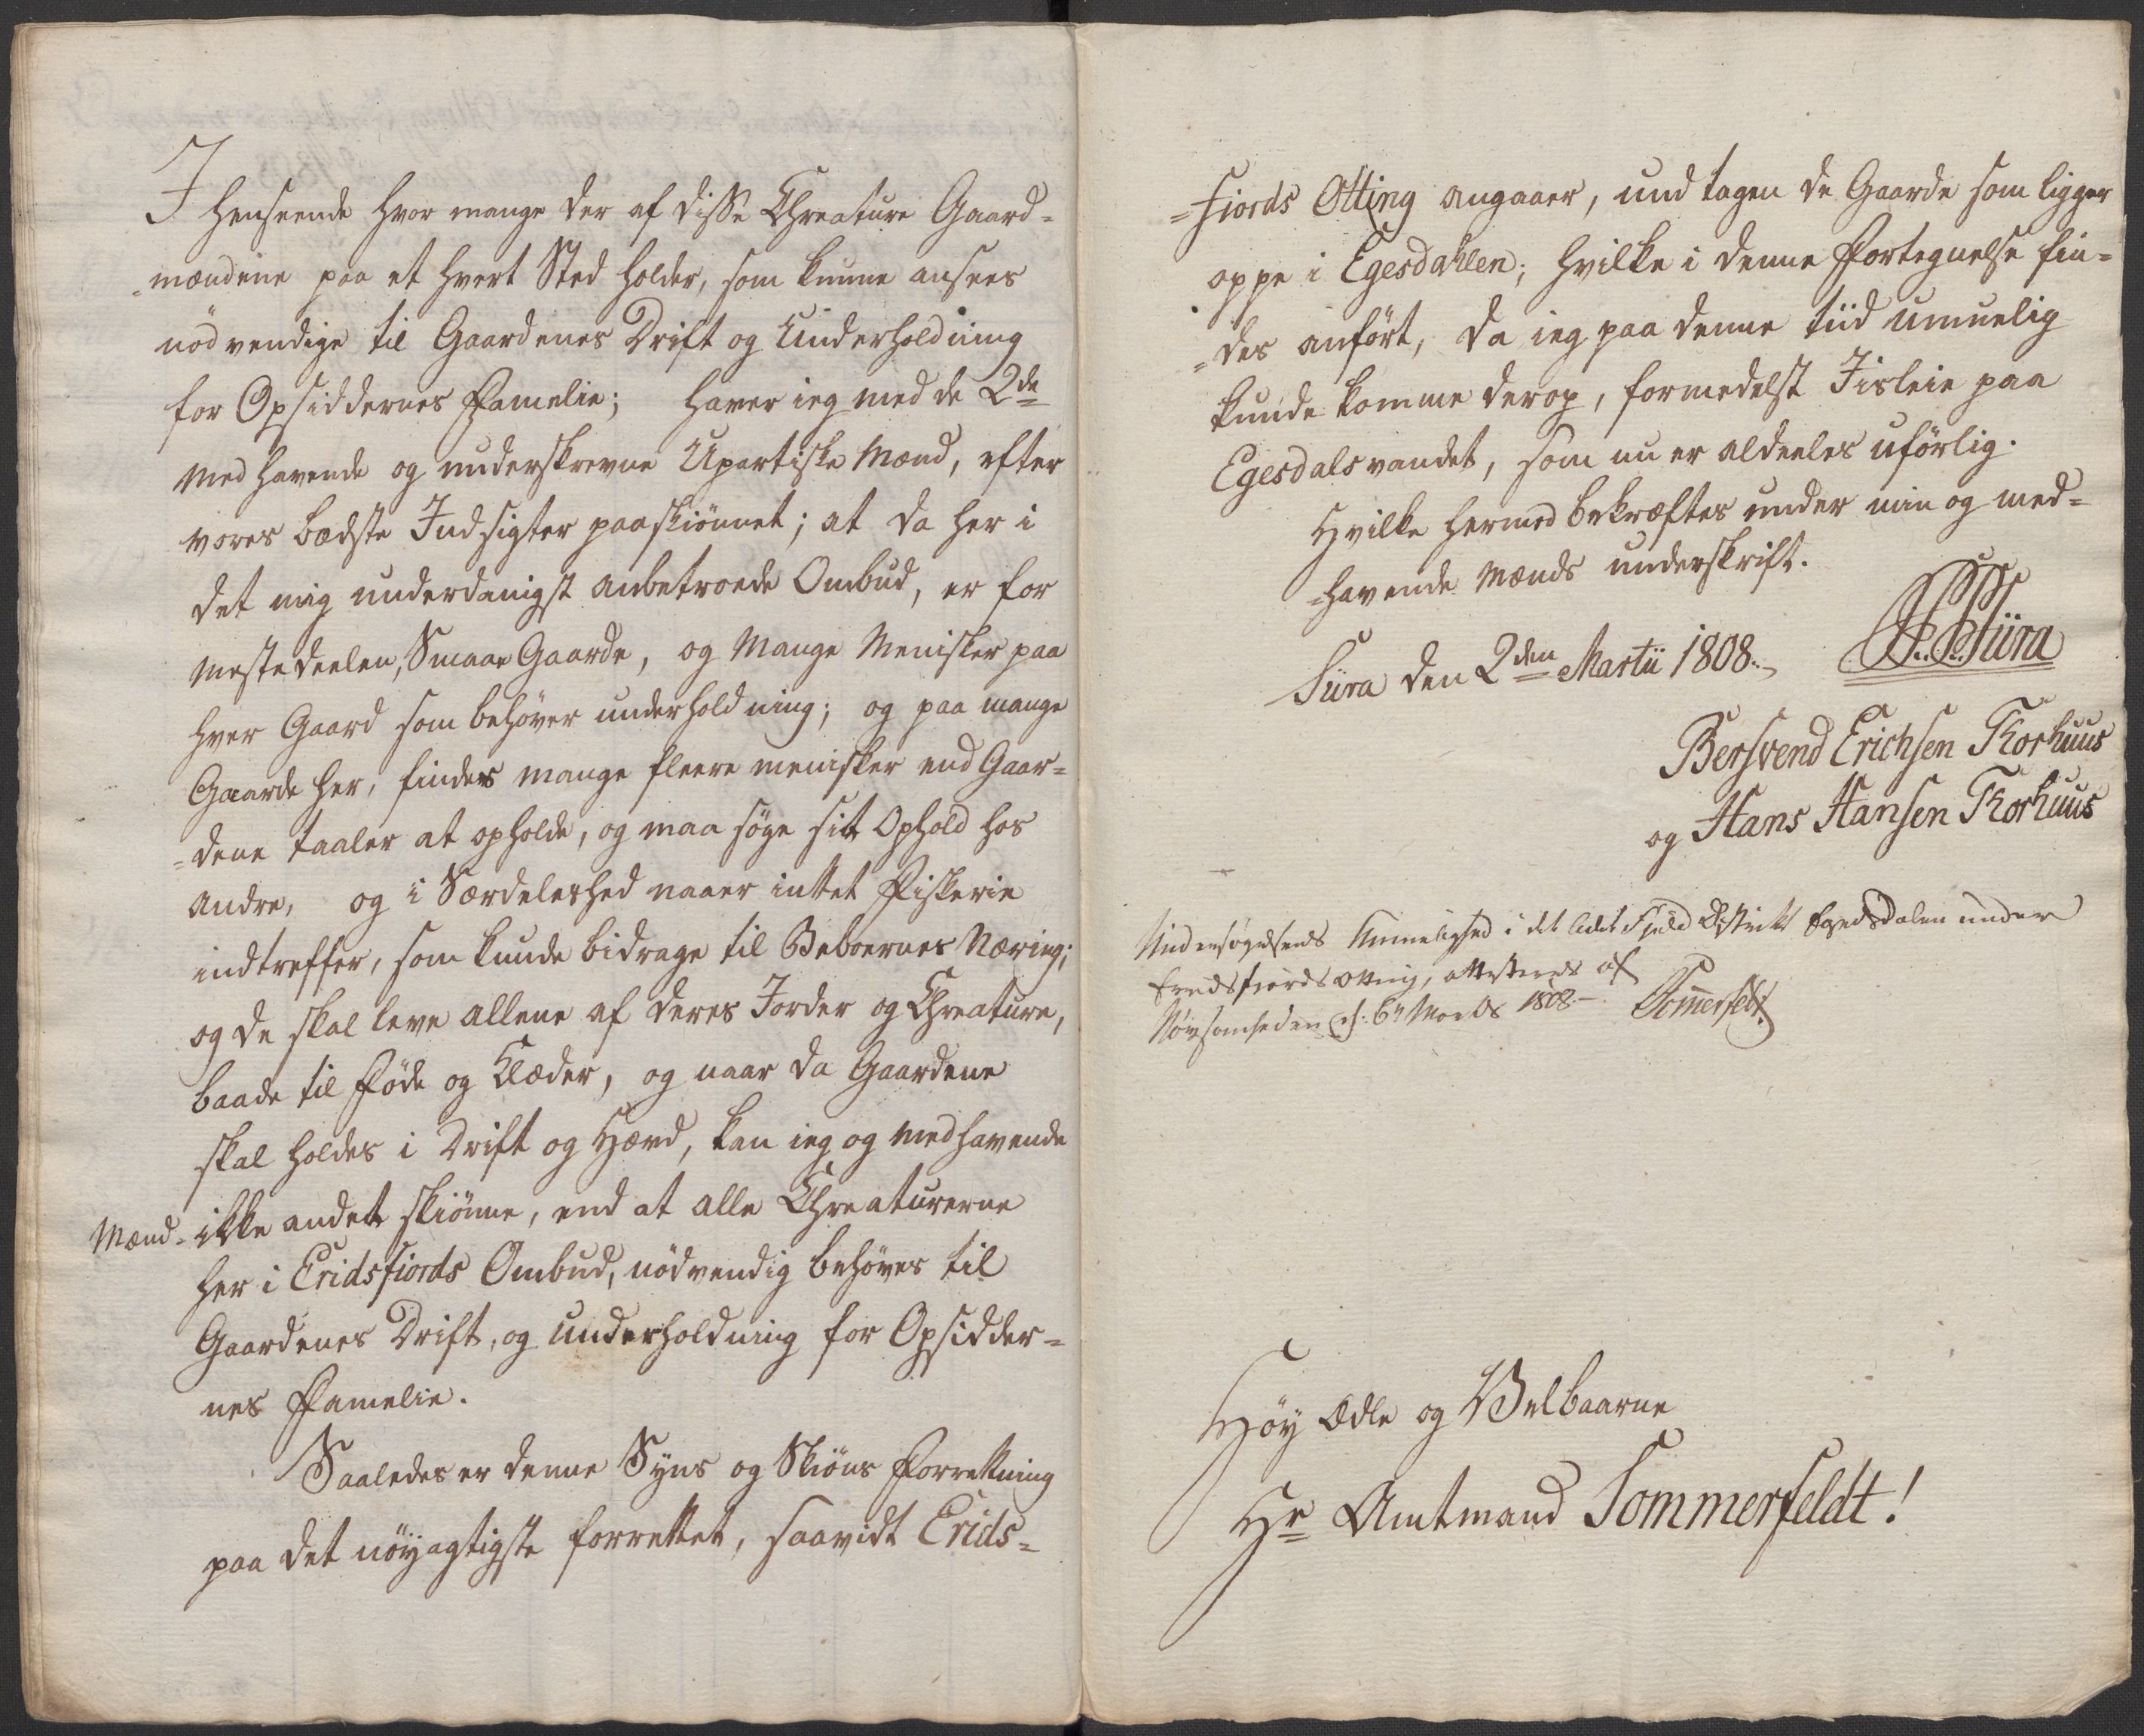 I Henseende hvor mange der af disse Chreature Gaard=
=mændene paa et hvert Sted holder, som kunne ansees
nödvendige til Gaardenes Drift og Underholdning
for Opsiddernes Famelie; haver ieg med de 2de
medhavende og underskrevne Upartiske Mænd, efter
vores bædste Indsigter paaskiönnet; at da her i
det mig underdanigst anbetroede Ombud, er for
mestedeelen, Smaae Gaarde, og Mange Menisker paa
hver Gaard som behöver underholdning; og paa mange
Gaarde her, findes mange fleere menisker end Gaar=
=dene taaler at opholde, og maa söge sit Ophold hos
andre, og i Særdeleshed naaer intet Fiskerie
indtreffer, som kunde bidrage til Beboernes Næring;
og de skal leve allene af deres Jorder og Chreature,
baade til föde og Klæder, og naar da Gaardene
skal holdes i Drift og Hævd, kan ieg og medhavende
Mænd= ikke andet skiönne, end at alle Chreaturerne
her i Eridsfiords Ombud, nödvendig behöves til
Gaardenes Drift, og underholdning for Opsidder=
nes Famelie.
Saaledes er denne Syns og Skiöns Forrettning
paa det nöyagtigste forrettet, saavidt Erids=
=Fiords Otting angaaer, undtagen de Gaarde som ligger
oppe i Egesdahlen; hvilke i denne Fortegnelse fin=
=des anfört, da ieg paa denne tiid umuelig
kunde komme derop, formedelst Iisleie paa
Egesdalsvandet, som nu er aldeeles uförlig.
Hvilke hermed bekræftes under min og med=
=havende Mænds underskrift.
Siira den 2den Martii 1808.
Siira
Bersvend Erichsen Torhuus
og Hans Hansen Torhuus
Undersøgelsens Umuelighed i det lidet Fjeld District Egesdalen under
Eridsfiords Otting, attesteres af
Nøysomheden d: 6te Marts 1808. Sommerfeldt
Höy Ædle og Velbaarne
Hr Amtmand Sommerfeldt!